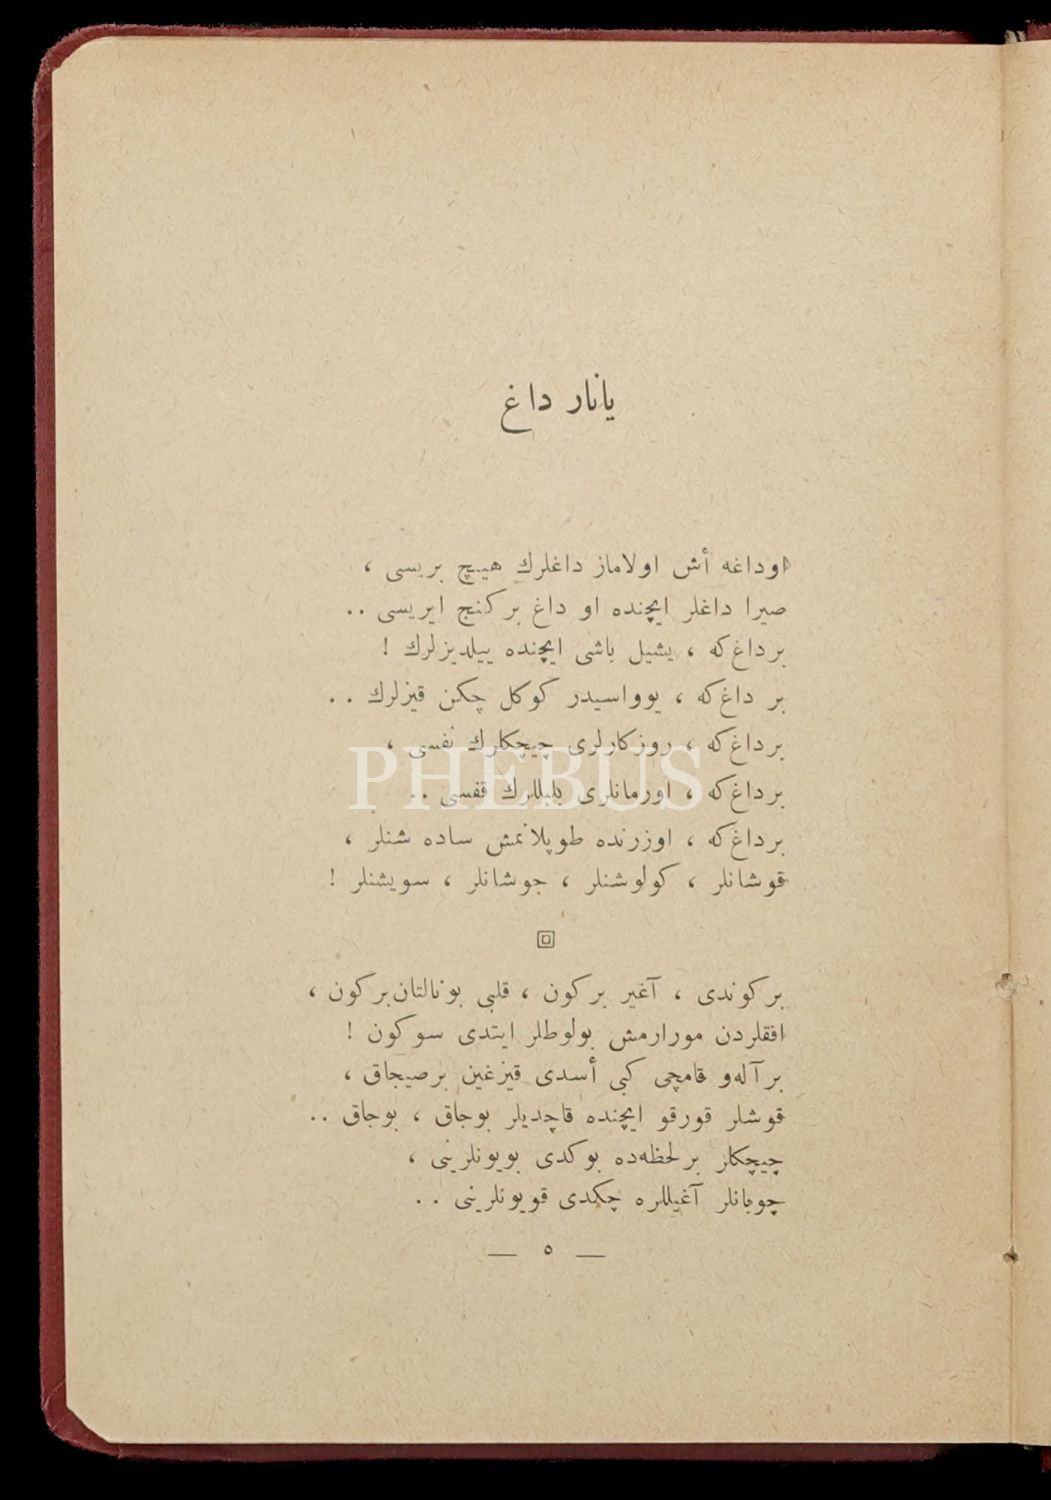 يانار داغ
اوداغه أش اولاماز داغلرك هيچ بريسى ،
صيرا داغلر ايچنده او داغ بر كنج ايريسى ..
برداغ‌كه ، يشيل باشى ايچنده ييلديزلرك !
بر داغ‌كه ، يوواسيدر كوكل چكن قيزلرك ..
برداغ‌كه ، روزكارلرى چيچكلرك نفسى ،
برداغ‌كه ، اورمانلرى بلبللرك قفسى ..
برداغ‌كه ، اوزرنده طوپلانمش ساده شنلر ،
قوشانلر ، كولوشنلر ، جوشانلر ، سويشنلر !
بركوندى ، آغير بركون ، قلبى بونالتان‌بركون ،
افقلردن مورارمش بولوطلر ايتدى سوكون !
برآله‌و قامچى كبى أسدى قيزغين برصيجاق ،
قوشلر قورقو ايچنده قاچديلر بوجاق ، بوجاق ..
چيچكلر برلحظه‌ده بوكدى بويونلرينى ،
چوبانلر آغيللره چكدى قويونلرينى ..
— ٥ —
PHEBUS